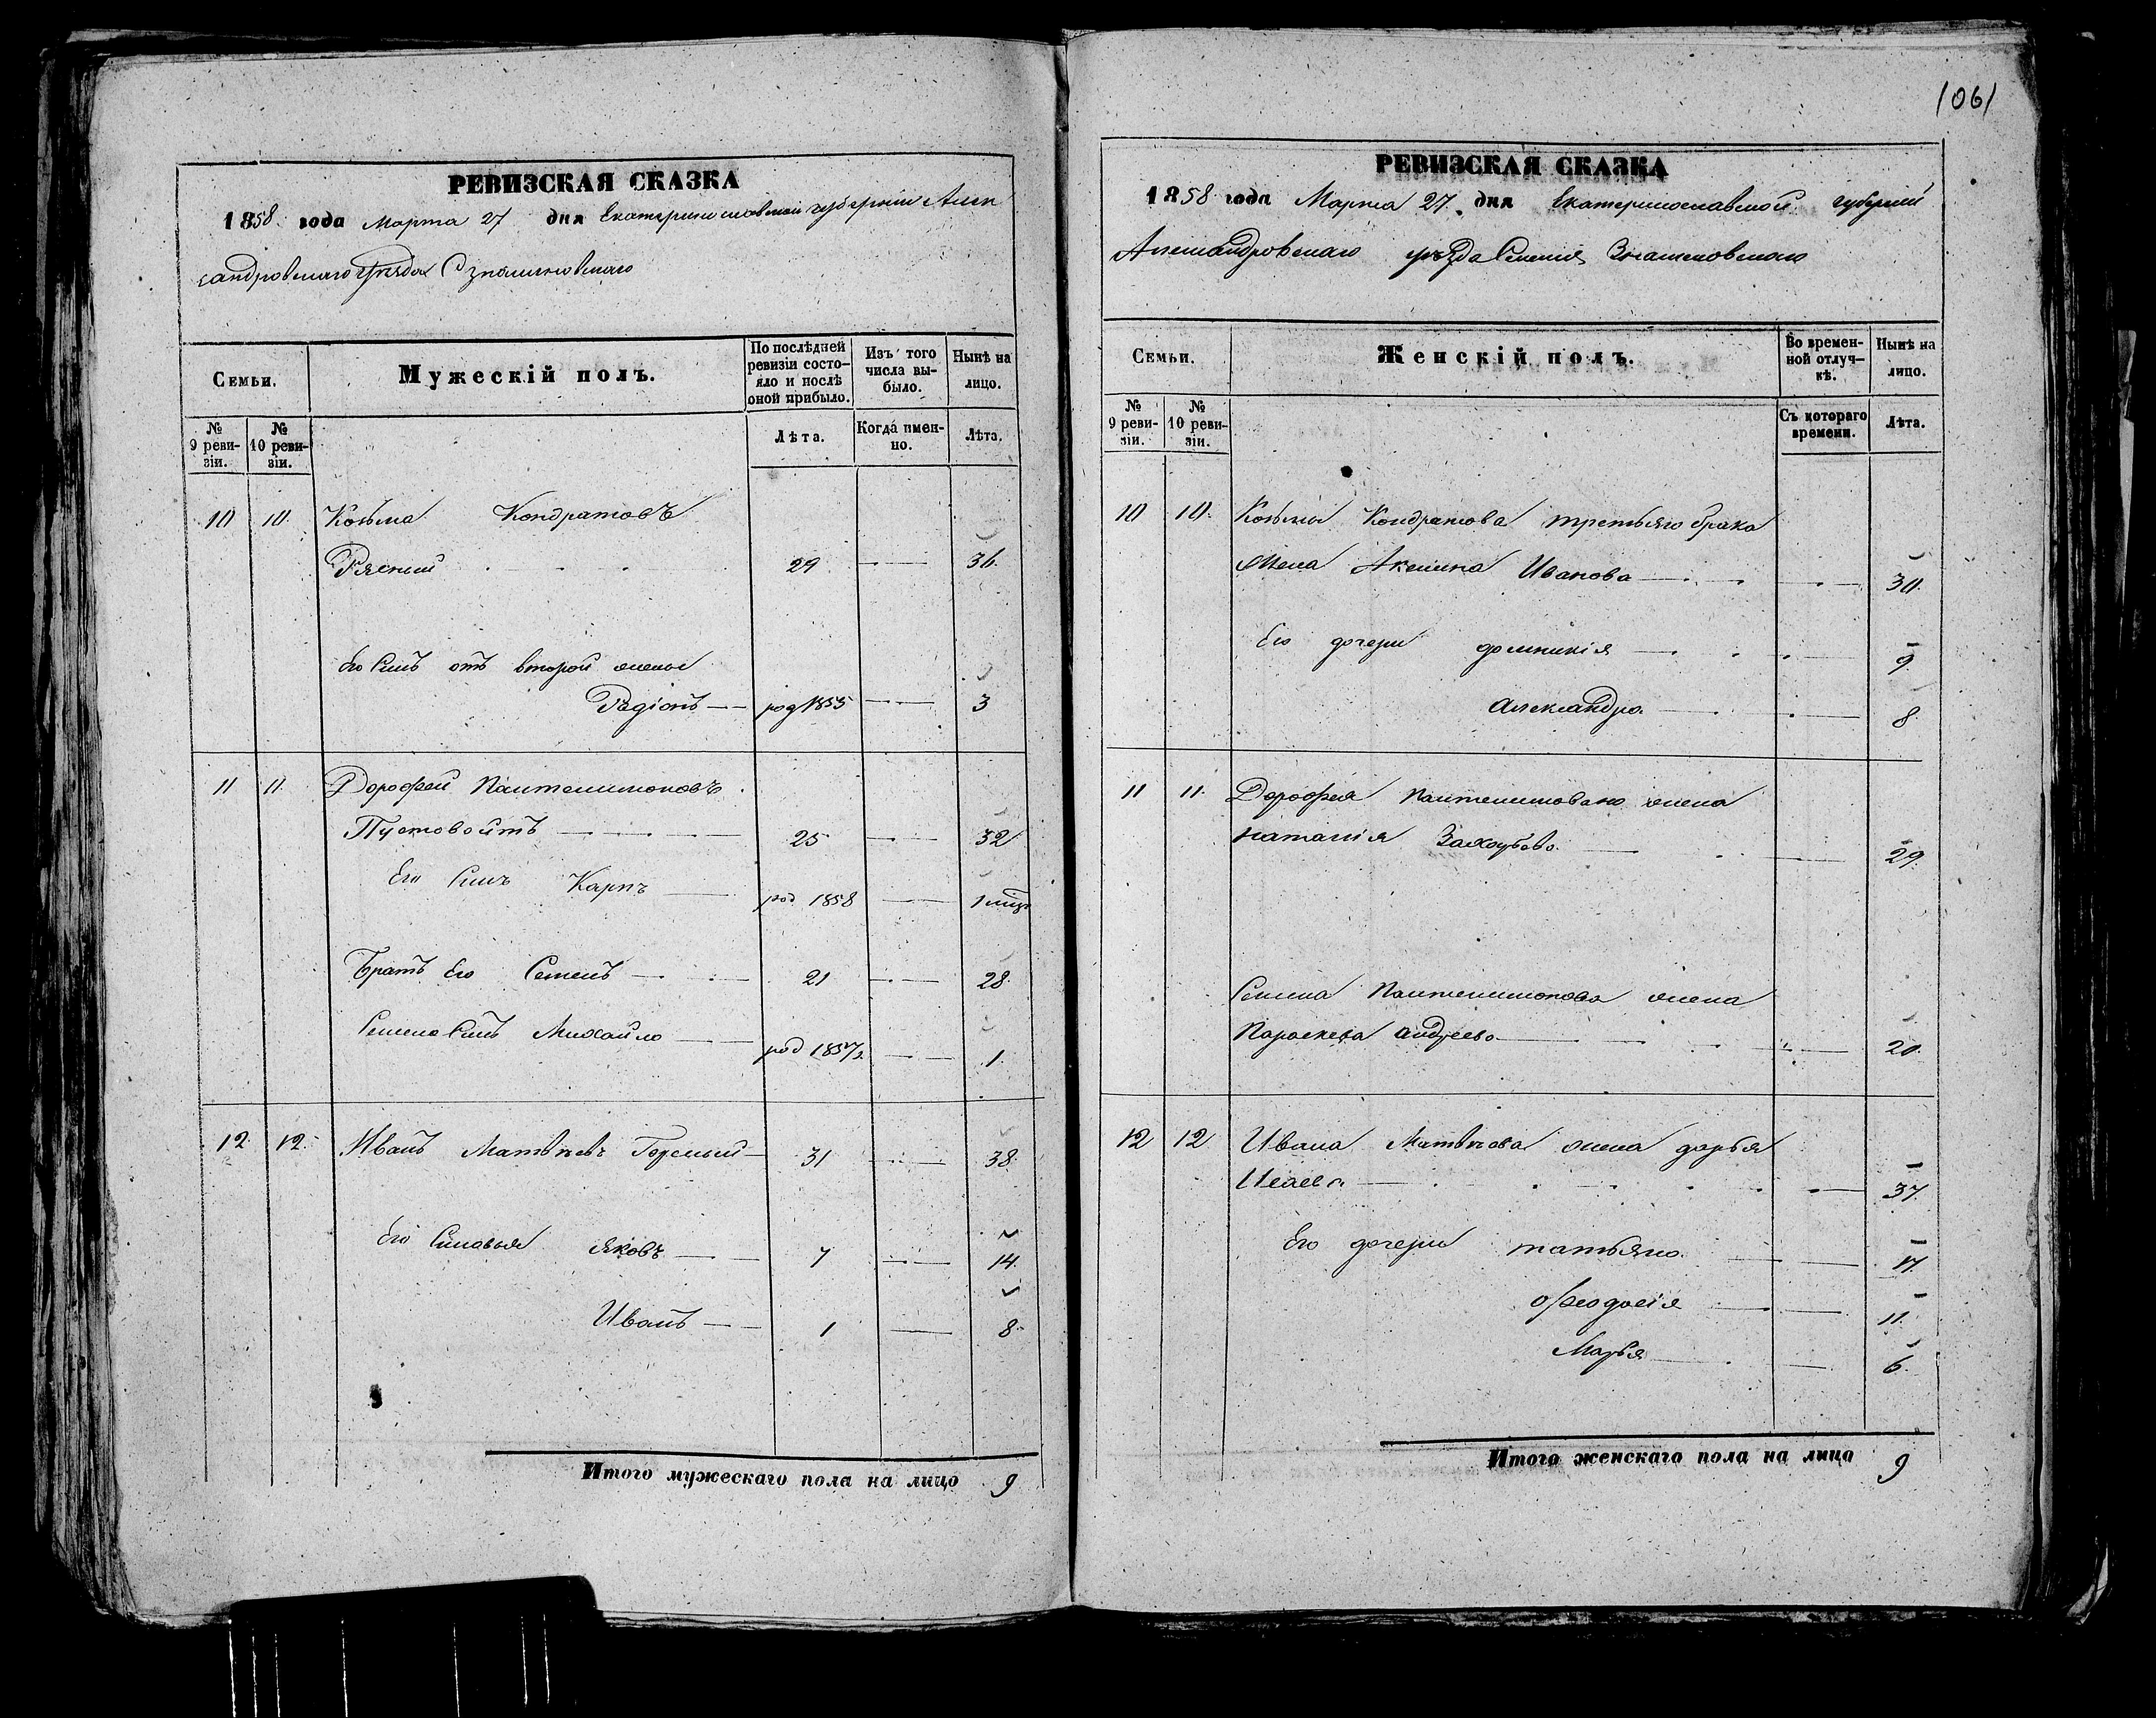 РЕВИЗСКАЯ СКАЗКА
1858 года Марта 27 дня Екатеринославской губернии Алек
сандровскаго уѣзда С Знаменовскаго
Семьи.
Мужескій полъ.
По послѣдней ревизіи состояло и послѣ оной прибыло.
Изъ того числа выбыло.
Нынѣ на лицо.
№ 9 ревизіи.
№ 10 ревизіи.
Лѣта.
Когда именно.
Лѣта.
10 10. Козьма Кондратовъ
Рясный 29 36.
Его Сынъ отъ второй жены
Радіонъ род 1855 3
11 11. Дорофей Пантелимоновъ
Пустовойтъ 25 32
Его Сынъ Карпъ род 1858 1 мѣц
Братъ Его Семенъ 21 28.
Семена Сынъ Михайло род 1857 1.
12. 12. Иванъ Матвѣевъ Горемый 31 38.
Его Сыновья Яковъ 7 14.
Иванъ 1 8.
Итого мужескаго пола на лицо 9
1061
РЕВИЗСКАЯ СКАЗКА
1858 года Марта 27 дня Екатеринославской губерніи
Александровскаго уѣзда Селенія Знаменовскаго
Семьи.
Женскій полъ.
Во временной отлучкѣ.
Нынѣ на лицо.
№ 9 ревизіи.
№ 10 ревизіи.
Съ котораго времени.
Лѣта.
10 10. Козьмы Кондратова третьяго брака
Жена Аксинья Иванова 30.
Его дочери домникія 9.
Александра 8.
11 11. Дорофея Пантелимонова жена
наталія Захарьева 29.
Семена Пантелимонова жена
Параскева Андреева 20.
12 12 Ивана Матвѣева жена дарья
Исаева 37.
Его дочери татьяна 17.
Феодосія 11.
Марья 6.
Итого женскаго пола на лицо 9